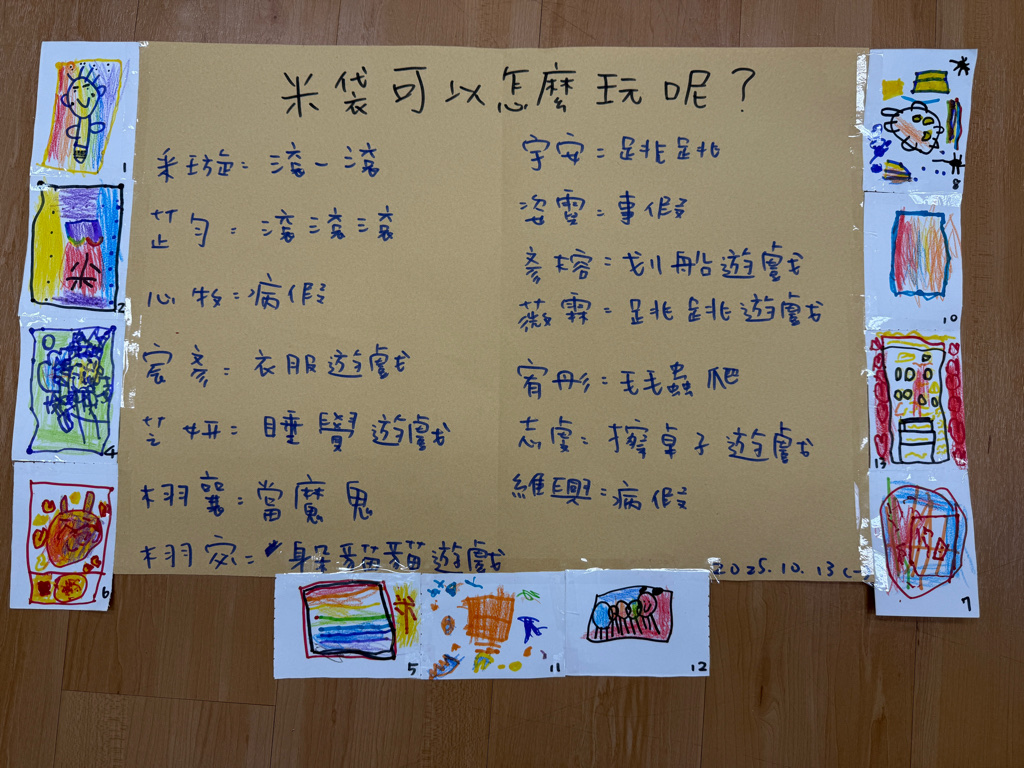 米袋可以怎麼玩呢？
采璇：滾一滾
芷勻：滾滾滾
心牧：病假
宸彥：衣服遊戲
芝妍：睡覺遊戲
栩當魔鬼
栩安：躲貓貓遊戲
宇安：跳跳
姿雯：事假
彥榕：划船遊戲
薇霖：跳跳遊戲
宥彤：毛毛蟲爬
志虔：擦桌子遊戲
維興：病假
2025.10.13(一
1
2
4
6
米
5
11
12
米
8
10
13
7
米